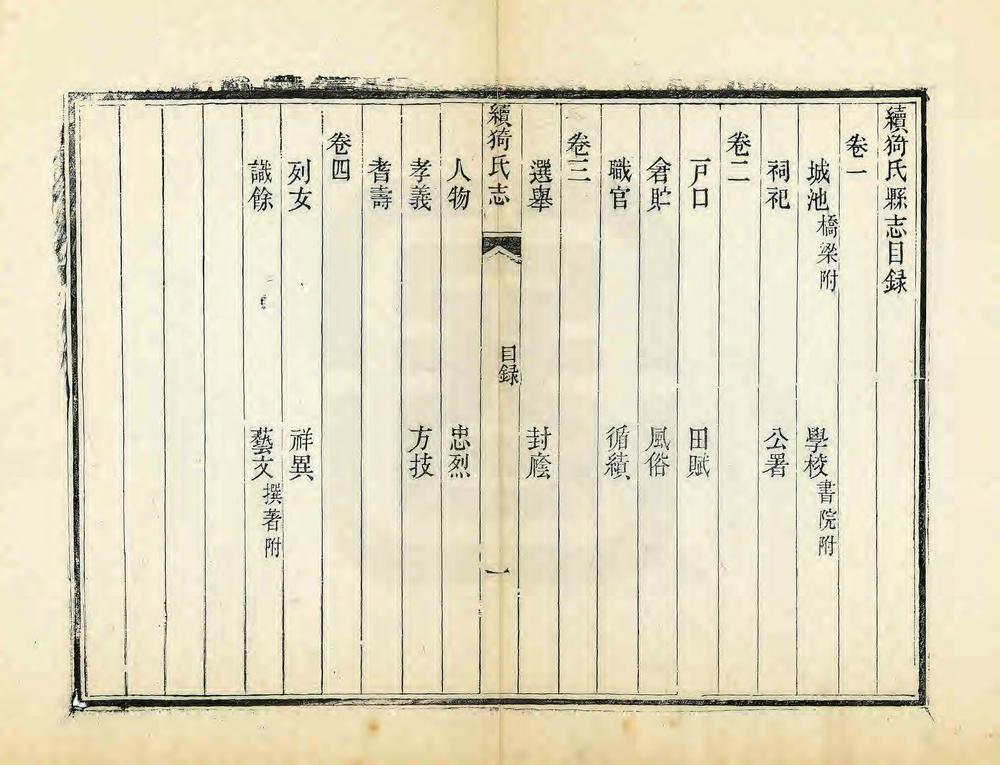 續猗氏縣志目録
卷一
城池橋梁附 學校書院附
祠祀 公署
卷二
戸口 田賦
倉貯 風俗
職官 循績
卷三
選舉 封廕
續猗氏志 目録 一
人物 忠烈
孝義 方技
耆壽
卷四
列女 祥異
識餘 藝文撰著附